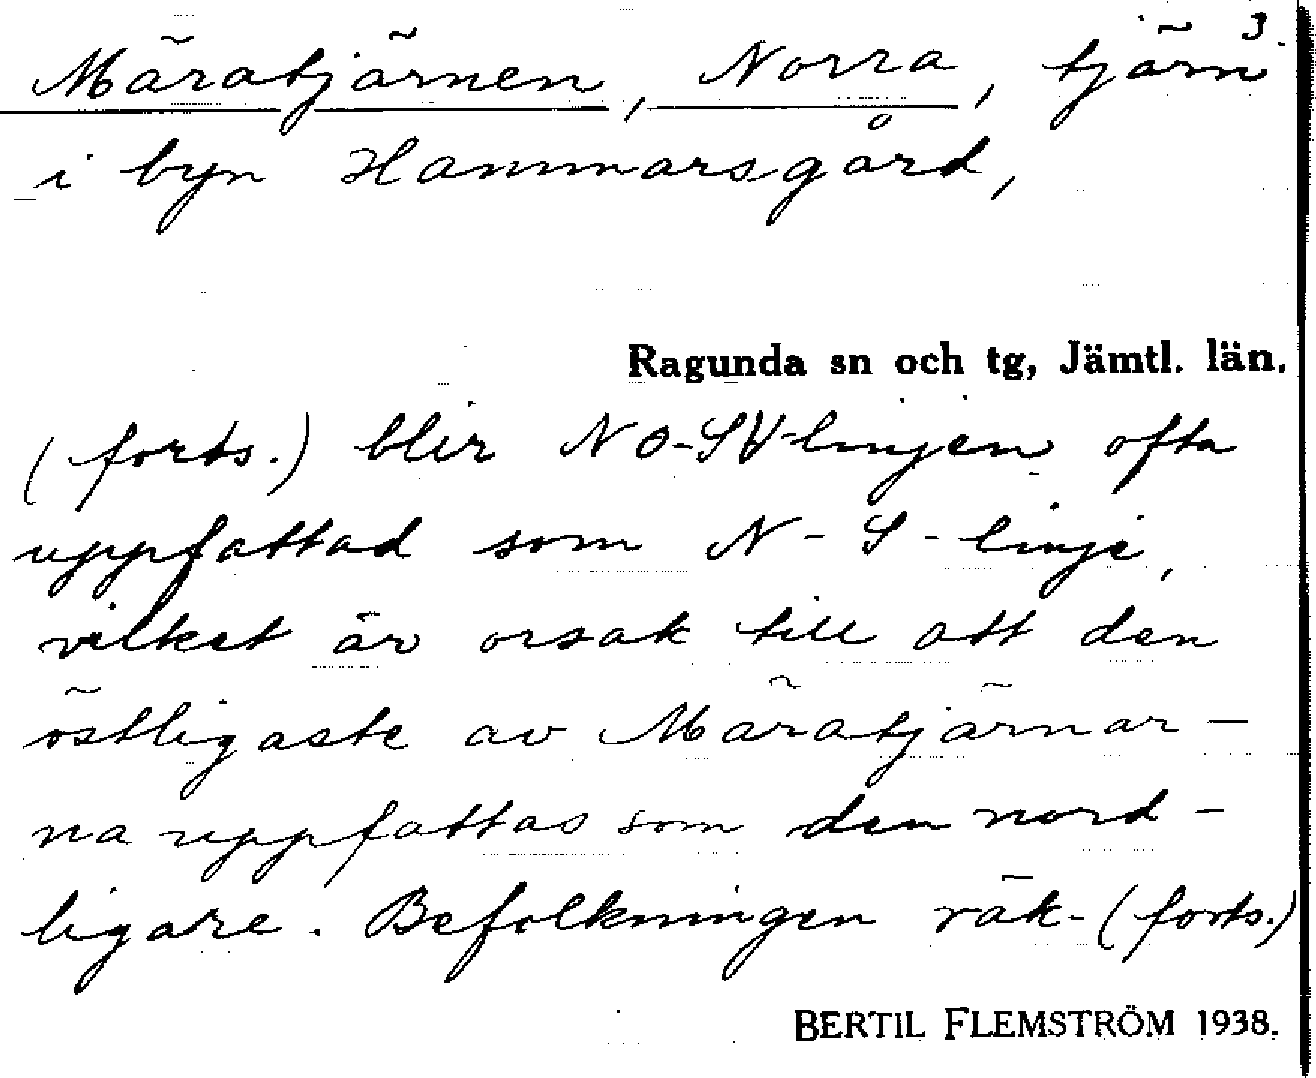 3.
Märatjärnen, Norra, tjärn
i byn Hammarsgård,
Ragunda sn och tg, Jämtl. län.
(forts.) blir NO-SV-linjen ofta
uppfattad som N-S-linje,
vilket är orsak till att den
östligaste av Märatjärnar-
na uppfattas som den nord-
ligare. Befolkningen räk- (forts.)
BERTIL FLEMSTRÖM 1938.